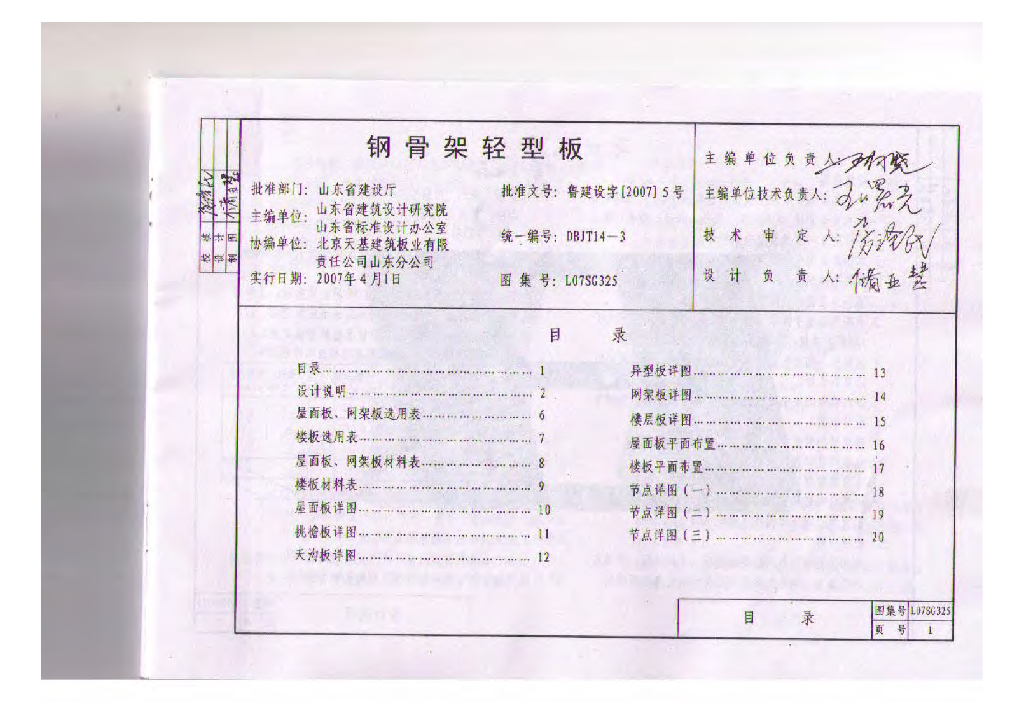 钢骨架轻型板
批准部门: 山东省建设厅
主编单位: 山东省建筑设计研究院
山东省标准设计办公室
协编单位: 北京天基建筑板业有限
责任公司山东分公司
实行日期: 2007年4月1日
批准文号: 鲁建设字[2007] 5号
统一编号: DBJT14-3
图集号: L07SG325
主编单位负责人:
主编单位技术负责人:
技术审定人:
设计负责人:
校核
设计
制图
目 录
目录 1
设计说明 2
屋面板、网架板选用表 6
楼板选用表 7
屋面板、网架板材料表 8
楼板材料表 9
屋面板详图 10
挑檐板详图 11
天沟板详图 12
异型板详图 13
网架板详图 14
楼层板详图 15
屋面板平面布置 16
楼板平面布置 17
节点详图(一) 18
节点详图(二) 19
节点详图(三) 20
目 录
图集号 L07SG325
页 号 1